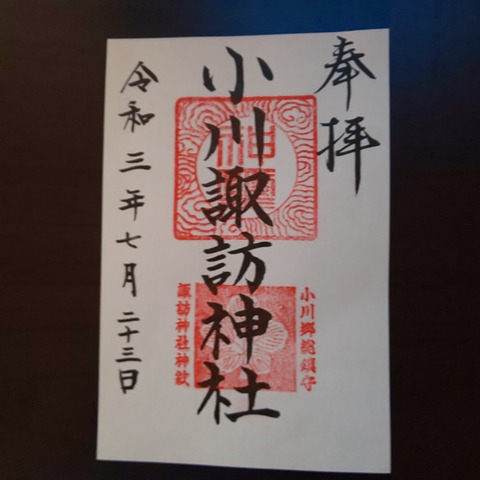 奉拝
小川諏訪神社
小川郷総鎮守
諏訪神社神紋
令和三年七月二十三日